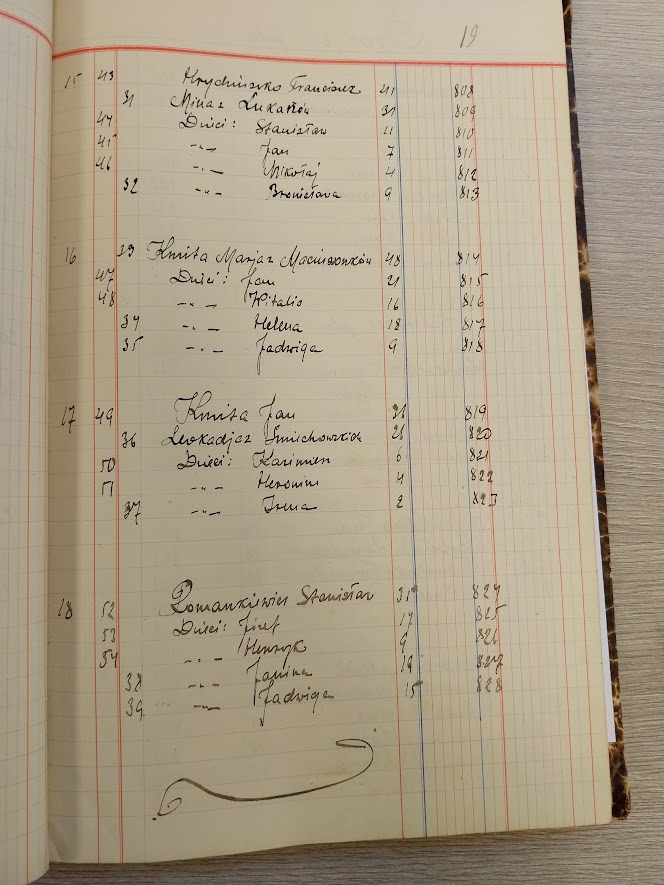 19
15 43 Hryciuszko Franciszek 41 808
31 Minaz Łukasków 31 809
44 Dzieci: Stanisław 11 810
45 -"- Jan 7 811
46 -"- Mikołaj 4 812
32 -"- Bronisława 9 813
16 33 Kmita Marja z Maciusonków 48 814
47 Dzieci: Jan 21 815
48 -"- Witalis 16 816
34 -"- Helena 18 817
35 -"- Jadwiga 9 818
17 49 Kmita Jan 819
36 Leokadja z Śmichowskich 820
50 Dzieci: Kazimierz 6 821
51 -"- Heronim 4 822
37 -"- Irena 2 823
18 52 Romankiewicz Stanisław 824
53 Dzieci: Józef 17 825
54 -"- Henryk 9 826
38 -"- Janina 19 827
39 -"- Jadwiga 15 828